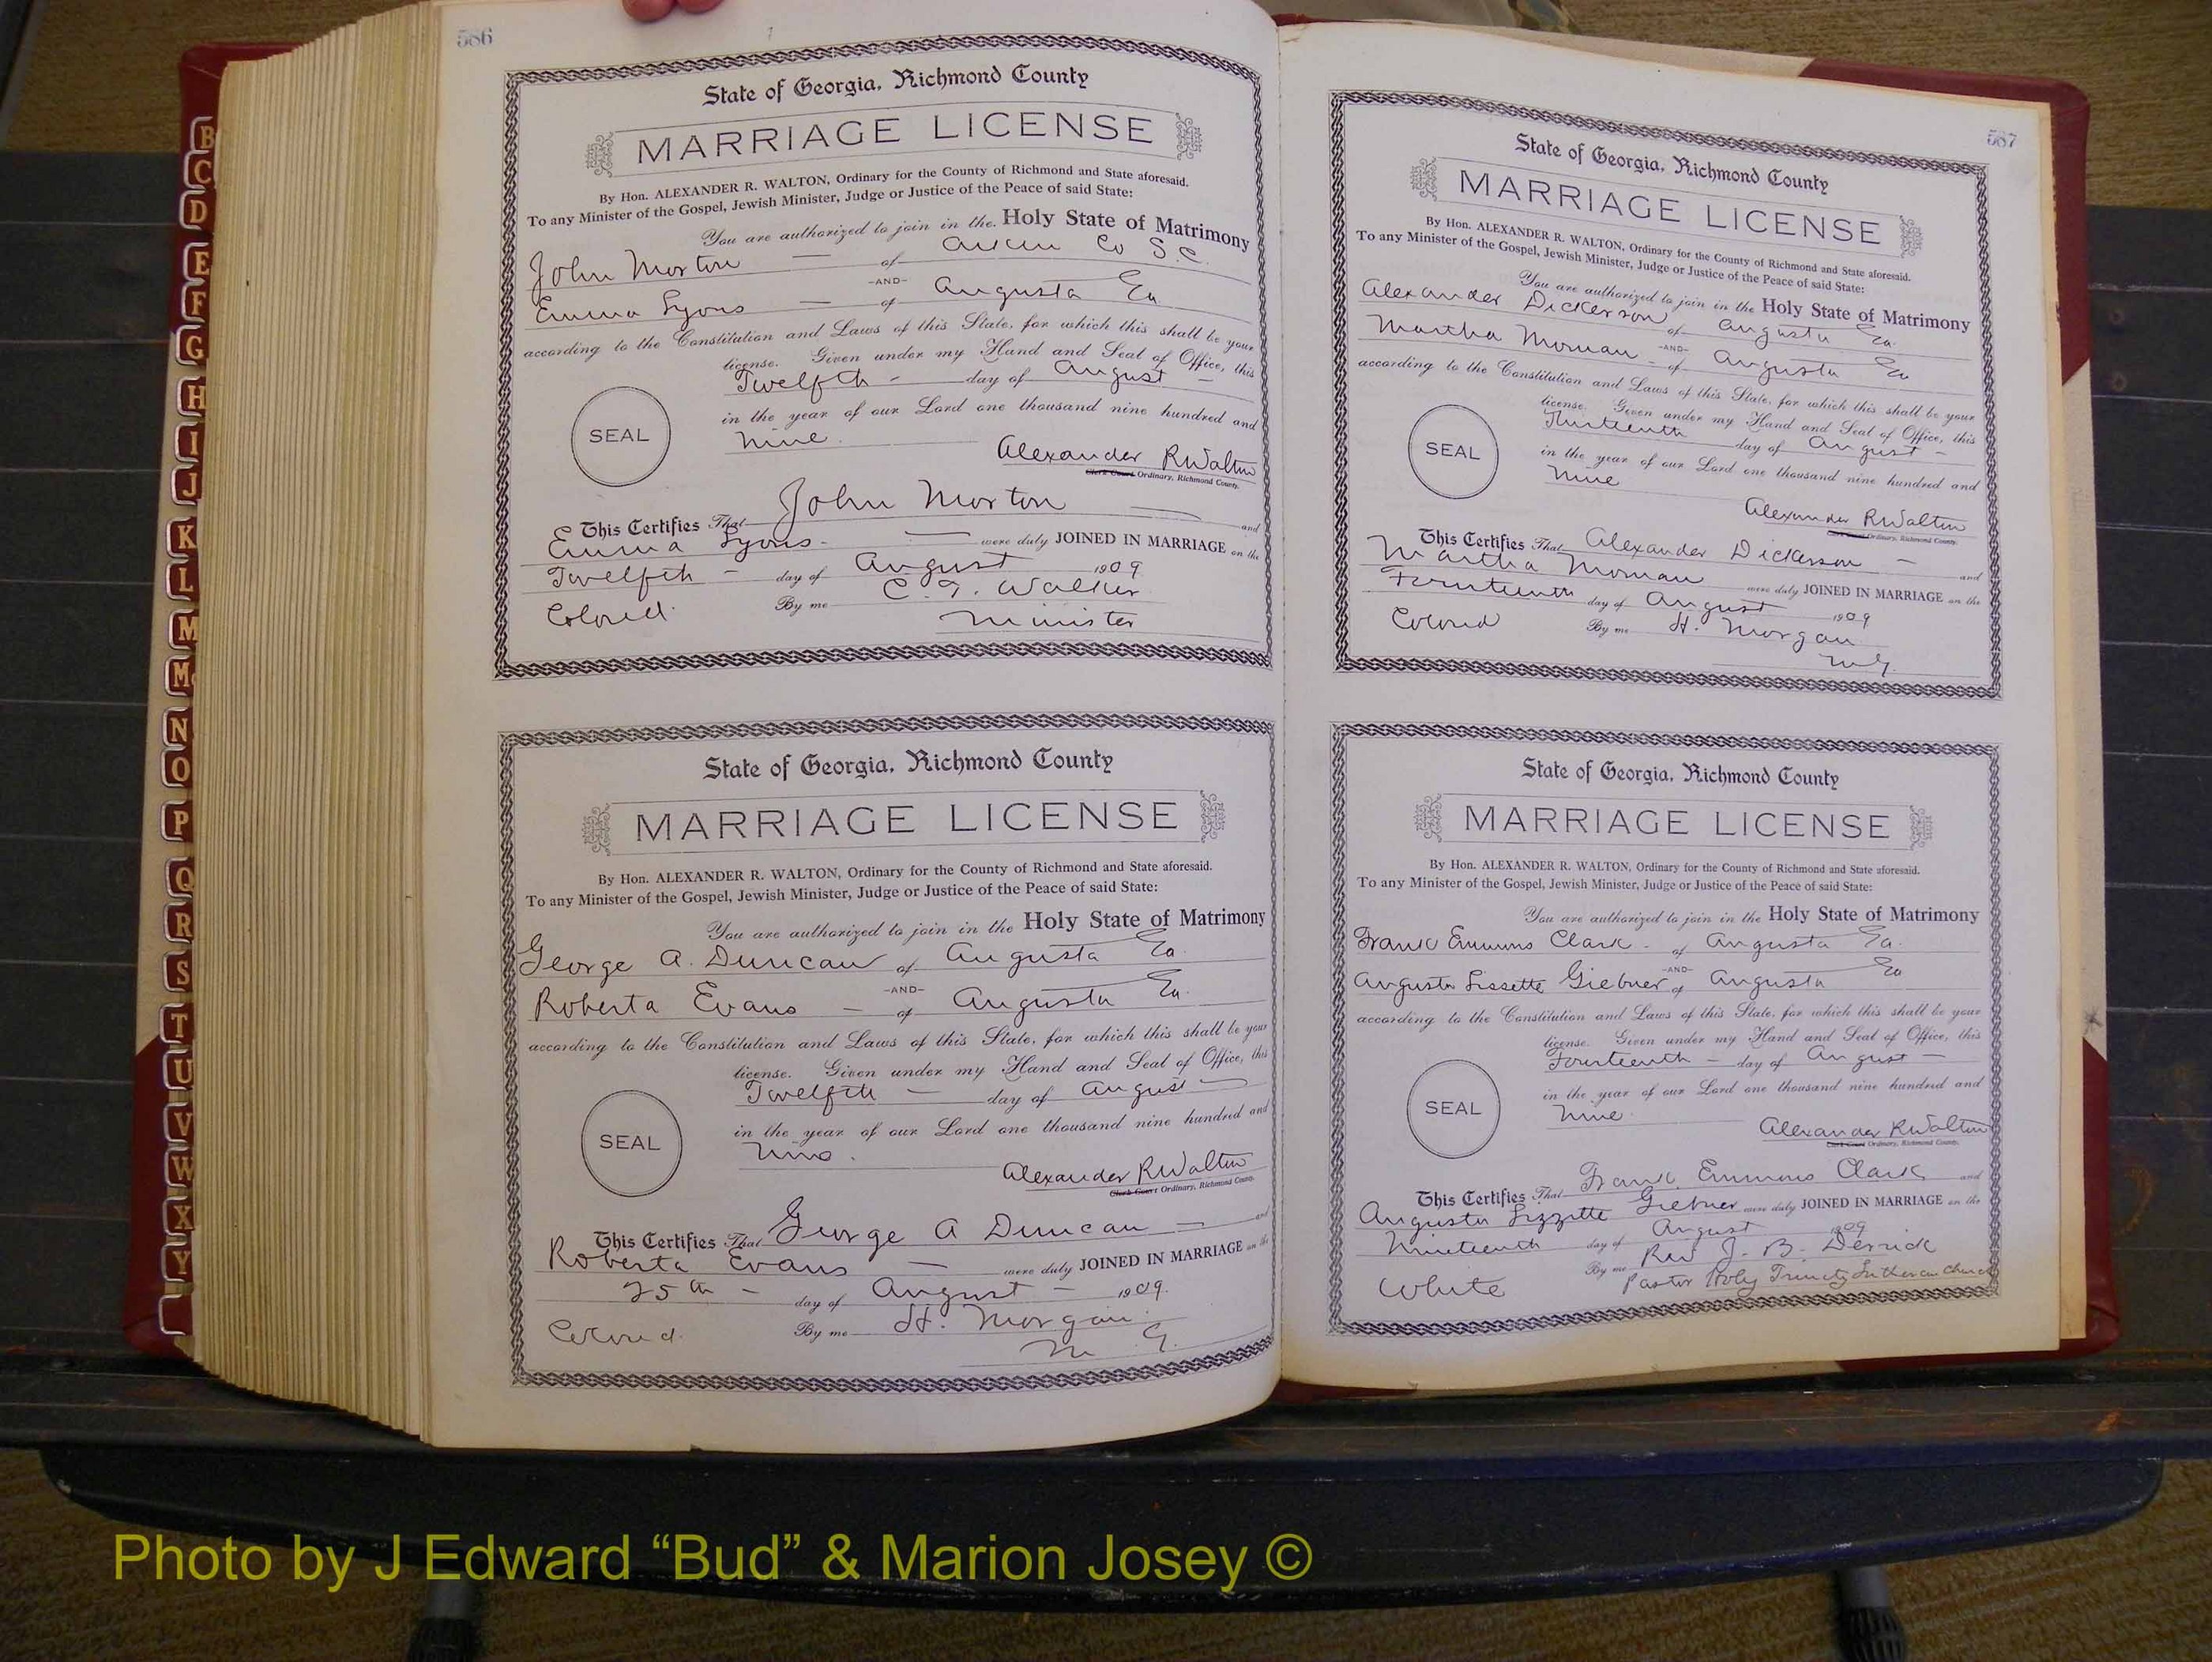 586
State of Georgia, Richmond County
MARRIAGE LICENSE
By Hon. ALEXANDER R. WALTON, Ordinary for the County of Richmond and State aforesaid.
To any Minister of the Gospel, Jewish Minister, Judge or Justice of the Peace of said State:
You are authorized to join in the Holy State of Matrimony
John Morton — of Aiken Co S.C.
-AND-
Emma Lyons — of Augusta Ga
according to the Constitution and Laws of this State, for which this shall be your
license. Given under my Hand and Seal of Office, this
Twelfth — day of August —
in the year of our Lord one thousand nine hundred and
SEAL
nine.
Alexander R Walton
Clerk Court Ordinary, Richmond County.
This Certifies That John Morton — and
Emma Lyons — were duly JOINED IN MARRIAGE on the
Twelfth — day of August 1909
Colored. By me C. T. Walker
Minister
State of Georgia, Richmond County
MARRIAGE LICENSE
By Hon. ALEXANDER R. WALTON, Ordinary for the County of Richmond and State aforesaid.
To any Minister of the Gospel, Jewish Minister, Judge or Justice of the Peace of said State:
You are authorized to join in the Holy State of Matrimony
George A. Duncan of Augusta Ga
-AND-
Roberta Evans — of Augusta Ga.
according to the Constitution and Laws of this State, for which this shall be your
license. Given under my Hand and Seal of Office, this
Twelfth — day of August —
in the year of our Lord one thousand nine hundred and
SEAL
nine.
Alexander R Walton
Clerk Court Ordinary, Richmond County.
This Certifies That George A Duncan — and
Roberta Evans — were duly JOINED IN MARRIAGE on the
25th — day of August — 1909.
Colored. By me H. Morgan
M. G.
587
State of Georgia, Richmond County
MARRIAGE LICENSE
By Hon. ALEXANDER R. WALTON, Ordinary for the County of Richmond and State aforesaid.
To any Minister of the Gospel, Jewish Minister, Judge or Justice of the Peace of said State:
You are authorized to join in the Holy State of Matrimony
Alexander Dickerson of Augusta Ga.
-AND-
Martha Moman — of Augusta Ga
according to the Constitution and Laws of this State, for which this shall be your
license. Given under my Hand and Seal of Office, this
Thirteenth day of August —
in the year of our Lord one thousand nine hundred and
SEAL
nine
Alexander R Walton
Clerk Court Ordinary, Richmond County.
This Certifies That Alexander Dickerson — and
Martha Moman were duly JOINED IN MARRIAGE on the
Fourteenth day of August 1909
Colored By me H. Morgan
M.G.
State of Georgia, Richmond County
MARRIAGE LICENSE
By Hon. ALEXANDER R. WALTON, Ordinary for the County of Richmond and State aforesaid.
To any Minister of the Gospel, Jewish Minister, Judge or Justice of the Peace of said State:
You are authorized to join in the Holy State of Matrimony
Frank Emmons Clark — of Augusta Ga.
-AND-
Augusta Lissette Giebner of Augusta Ga
according to the Constitution and Laws of this State, for which this shall be your
license. Given under my Hand and Seal of Office, this
Fourteenth — day of August —
in the year of our Lord one thousand nine hundred and
SEAL
nine.
Alexander R Walton
Clerk Court Ordinary, Richmond County.
This Certifies That Frank Emmons Clark and
Augusta Lizzette Giebner were duly JOINED IN MARRIAGE on the
Nineteenth day of August 1909
By me Rev J. B. Derrick
White Pastor Holy Trinity Lutheran Church
B
C
D
E
F
G
H
I
J
K
L
M
Mc
N
O
P
Q
R
S
T
U
V
W
X
Y
Photo by J Edward “Bud” & Marion Josey ©